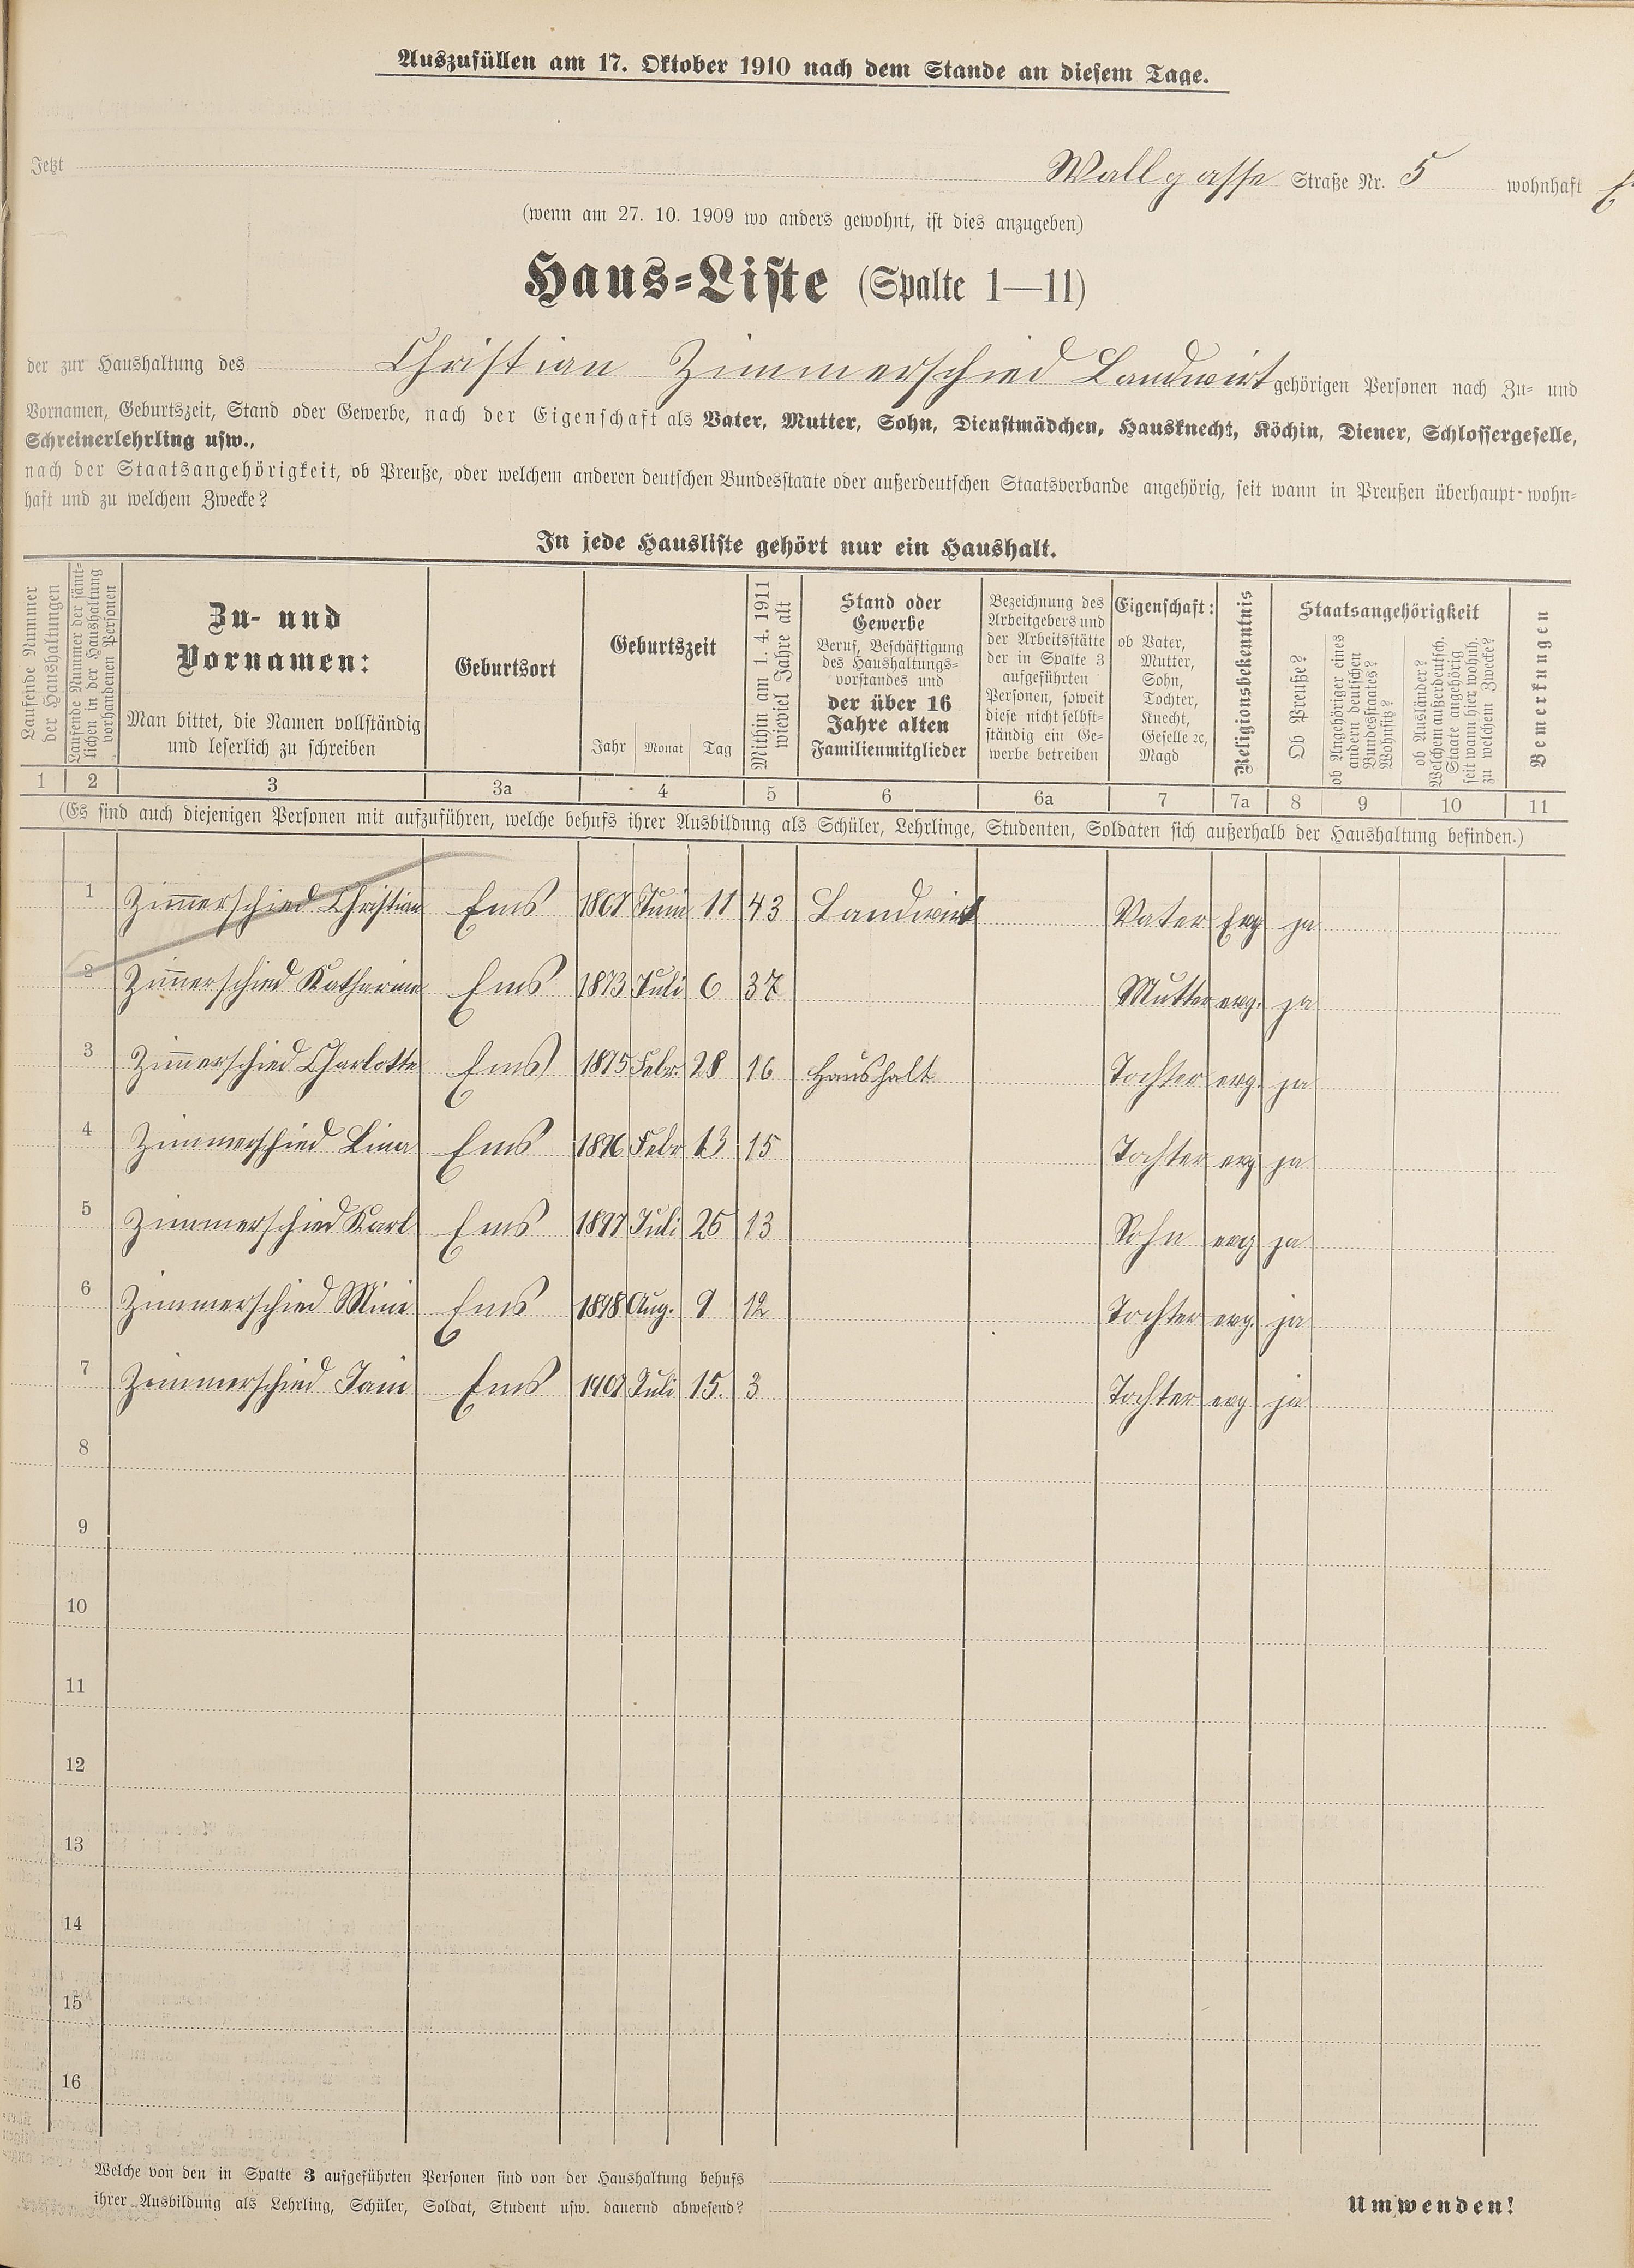 Auszufüllen am 17. Oktober 1910 nach dem Stande an diesem Tage.
Jetzt Wallgasse Straße Nr. 5 wohnhaft
(wenn am 27. 10. 1909 wo anders gewohnt, ist dies anzugeben)
Haus-Liste (Spalte 1—11)
der zur Haushaltung des Christian Zimmerschied Landwirt gehörigen Personen nach Zu- und
Vornamen, Geburtszeit, Stand oder Gewerbe, nach der Eigenschaft als Vater, Mutter, Sohn, Dienstmädchen, Hausknecht, Köchin, Diener, Schlossergeselle,
Schreinerlehrling usw.,
nach der Staatsangehörigkeit, ob Preuße, oder welchem anderen deutschen Bundesstaate oder außerdeutschen Staatsverbande angehörig, seit wann in Preußen überhaupt wohn-
haft und zu welchem Zwecke?
In jede Hausliste gehört nur ein Haushalt.
Laufende Nummer
der Haushaltungen
Laufende Nummer der sämt-
lichen in der Haushaltung
vorhandenen Personen
Zu- und
Vornamen:
Man bittet, die Namen vollständig
und leserlich zu schreiben
Geburtsort
Geburtszeit
Jahr Monat Tag
Mithin am 1. 4. 1911
wieviel Jahre alt
Stand oder
Gewerbe
Beruf, Beschäftigung
des Haushaltungs-
vorstandes und
der über 16
Jahre alten
Familienmitglieder
Bezeichnung des
Arbeitgebers und
der Arbeitsstätte
der in Spalte 3
aufgeführten
Personen, soweit
diese nicht selbst-
ständig ein Ge-
werbe betreiben
Eigenschaft:
ob Vater,
Mutter,
Sohn,
Tochter,
Knecht,
Geselle ec,
Magd
Religionsbekenntnis
Staatsangehörigkeit
Ob Preuße?
ob Angehöriger eines
andern deutschen
Bundesstaates?
Wohnsitz?
ob Ausländer?
Welchem außerdeutsch.
Staate angehörig
seit wann hier wohnh.
zu welchem Zwecke?
Bemerkungen
1 2 3 3a 4 5 6 6a 7 7a 8 9 10 11
(Es sind auch diejenigen Personen mit aufzuführen, welche behufs ihrer Ausbildung als Schüler, Lehrlinge, Studenten, Soldaten sich außerhalb der Haushaltung befinden.)
1 Zim̅erschied Christian Ems Juni 11 43 Landwirt Vater Evg ja
2 Zim̅erschied Katharine Ems 1873 Juli 6 37 Mutter evg. ja
3 Zim̅erschied Charlotte Ems 1895 Febr. 28 16 Haushalt Tochter evg. ja
4 Zimmerschied Lina Ems 1896 Febr 13 15 Tochter evg ja
5 Zimmerschied Karl Ems 1897 Juli 25 13 Sohn evg ja
6 Zimmerschied Mini Ems 1898 Aug. 9 12 Tochter evg. ja
7 Zimmerschied Ems 1907 Juli 15. 3 Tochter evg ja
8
9
10
11
12
13
14
15
16
Welche von den in Spalte 3 aufgeführten Personen sind von der Haushaltung behufs
ihrer Ausbildung als Lehrling, Schüler, Soldat, Student usw. dauernd abwesend?
Umwenden!